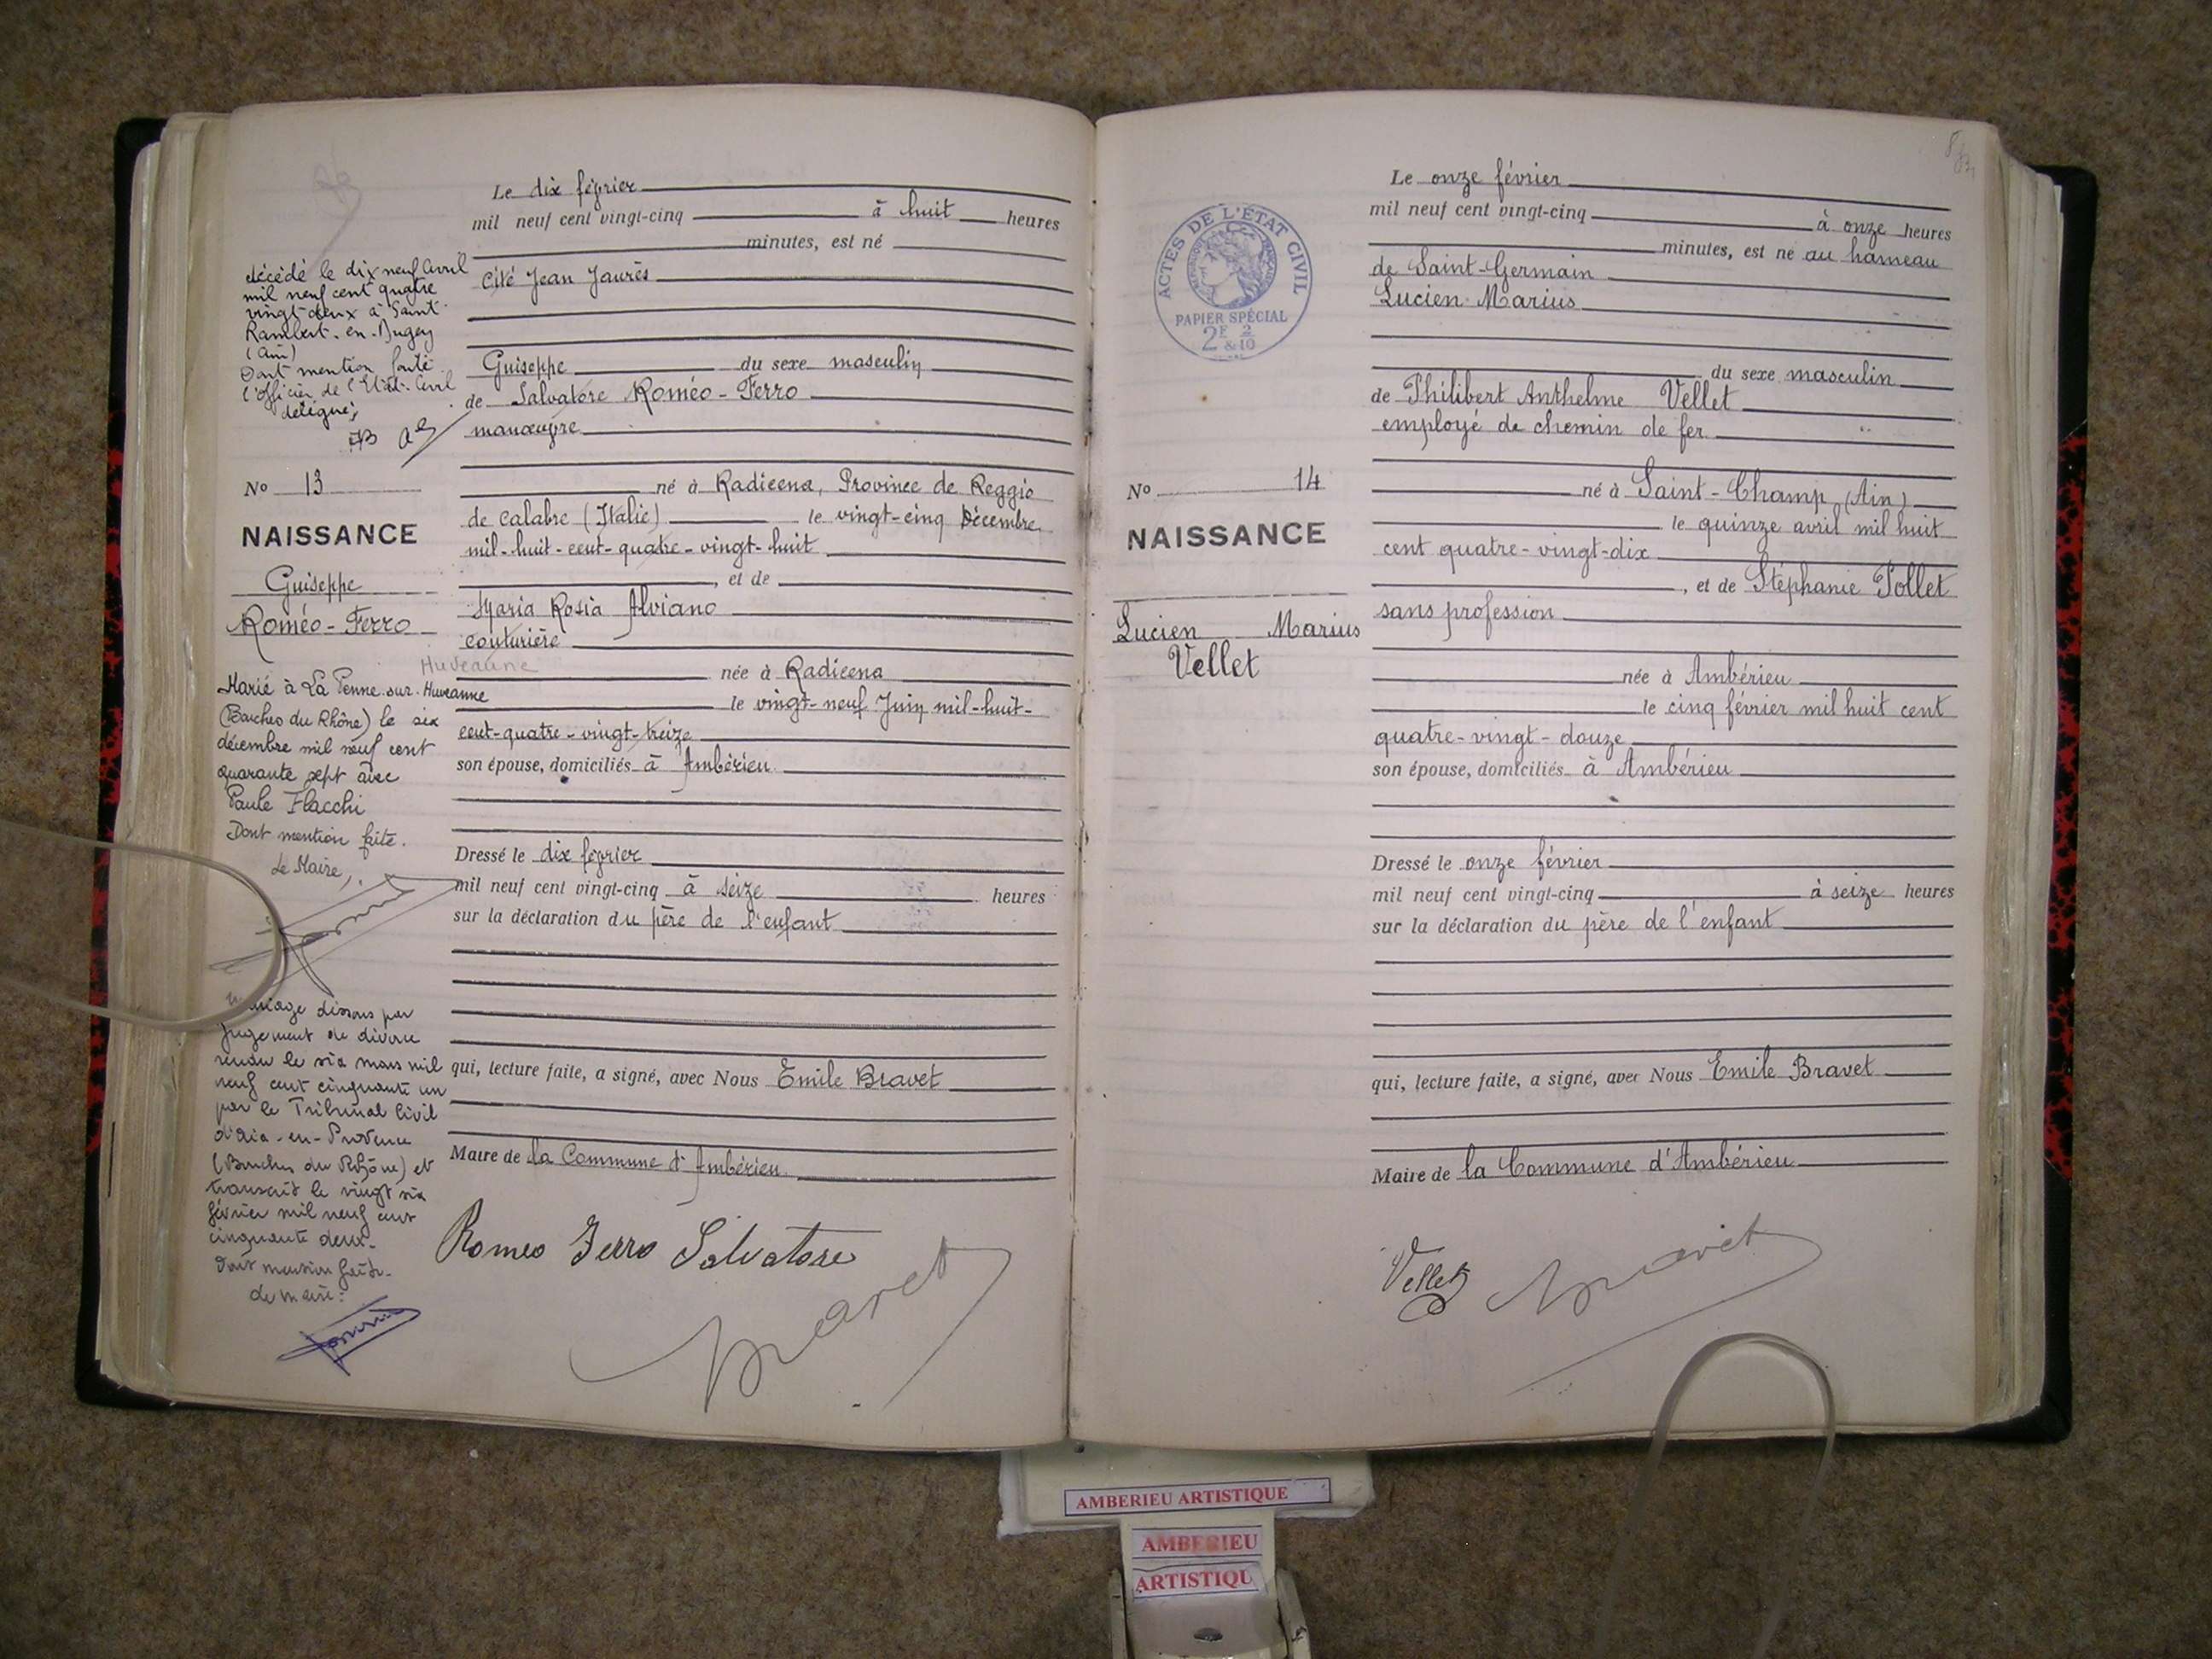 décédé le dix neuf avril
mil neuf cent quatre
vingt-deux à Saint-
Rambert-en-Bugey
(Ain)
Dont mention faite
l'officier de l'Etat-Civil
délégué,
No 13
NAISSANCE
Guiseppe
Roméo-Ferro
Huveaune
Marié à La Penne-sur-Huveaune
(Bouches du Rhône) le six
décembre mil neuf cent
quarante sept avec
Paule Flacchi
Dont mention faite.
Le Maire,
mariage dissous par
jugement de divorce
rendu le six mars mil
neuf cent cinquante un
par le Tribunal Civil
d'Aix-en-Provence
(Bouches du Rhône) et
transcrit le vingt six
février mil neuf cent
cinquante deux.
Dont mention faite.
Le maire:
Le dix février
mil neuf cent vingt-cinq à huit heures
minutes, est né
Cité Jean Jaurès
Guiseppe du sexe masculin
de Salvatore Roméo-Ferro
manœuvre
né à Radicena, Province de Reggio
de Calabre (Italie) le vingt-cinq Décembre
mil-huit-cent-quatre-vingt-huit
, et de
Maria Rosia Alviano
couturière
née à Radicena
le vingt-neuf Juin mil-huit-
cent-quatre-vingt-treize
son épouse, domiciliés à Ambérieu
Dressé le dix février
mil neuf cent vingt-cinq à seize heures
sur la déclaration du père de l'enfant
qui, lecture faite, a signé, avec Nous Emile Bravet
Maire de la Commune d'Ambérieu
Romeo Ferro Salvatore
Bravet
ACTES DE L'ÉTAT CIVIL
PAPIER SPÉCIAL
2F & 2/10
No 14
NAISSANCE
Lucien Marius
Vellet
Le onze février
mil neuf cent vingt-cinq à onze heures
minutes, est né au hameau
de Saint-Germain
Lucien Marius
du sexe masculin
de Philibert Anthelme Vellet
employé de chemin de fer
né à Saint-Champ (Ain)
le quinze avril mil huit
cent quatre-vingt-dix
, et de Stéphanie Pollet
sans profession
née à Ambérieu
le cinq février mil huit cent
quatre-vingt-douze
son épouse, domiciliés à Ambérieu
Dressé le onze février
mil neuf cent vingt-cinq à seize heures
sur la déclaration du père de l'enfant
qui, lecture faite, a signé, avec Nous Emile Bravet
Maire de la Commune d'Ambérieu
Vellet
Bravet
AMBERIEU ARTISTIQUE
AMBERIEU
ARTISTIQU